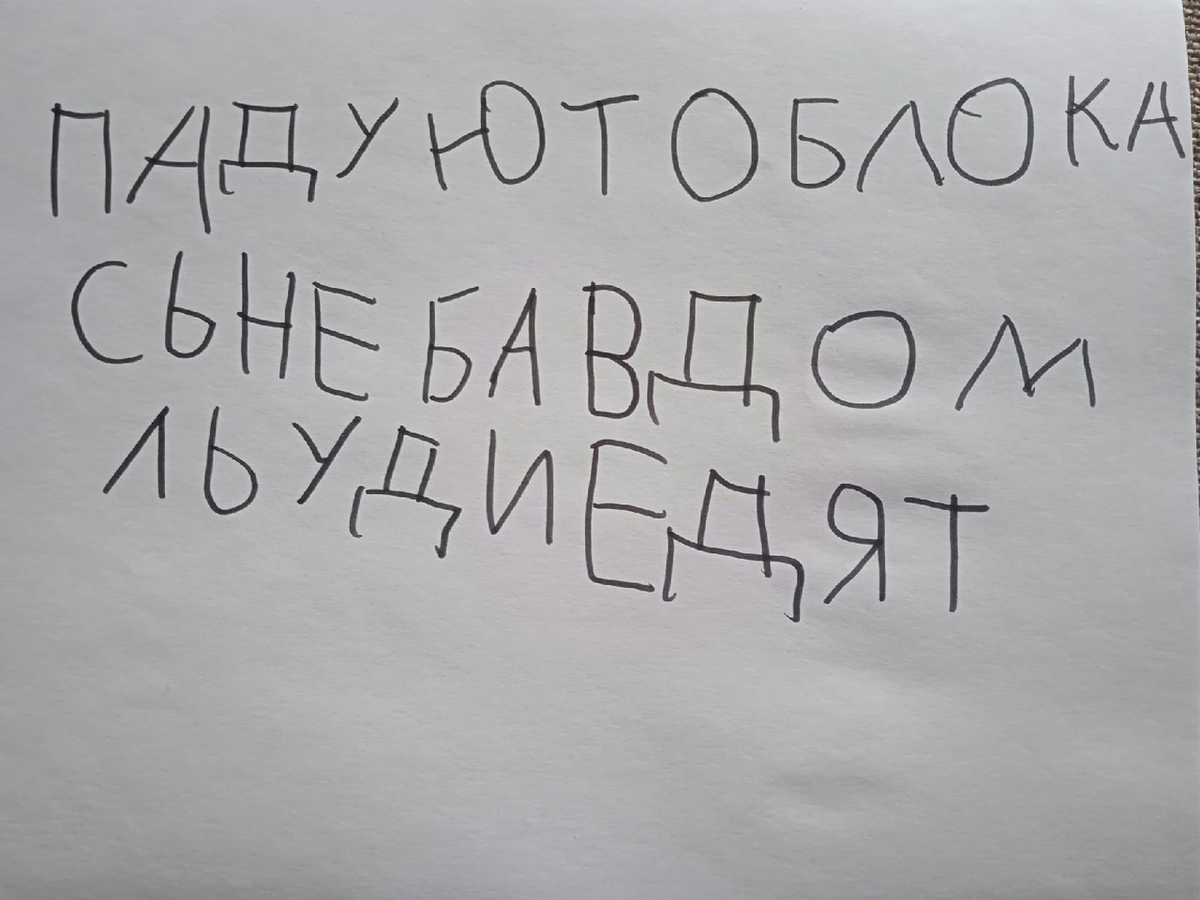 ПАДУЮТОБЛОКА
СЬНЕБАВДОМ
ЛЬУДИЕДЯТ